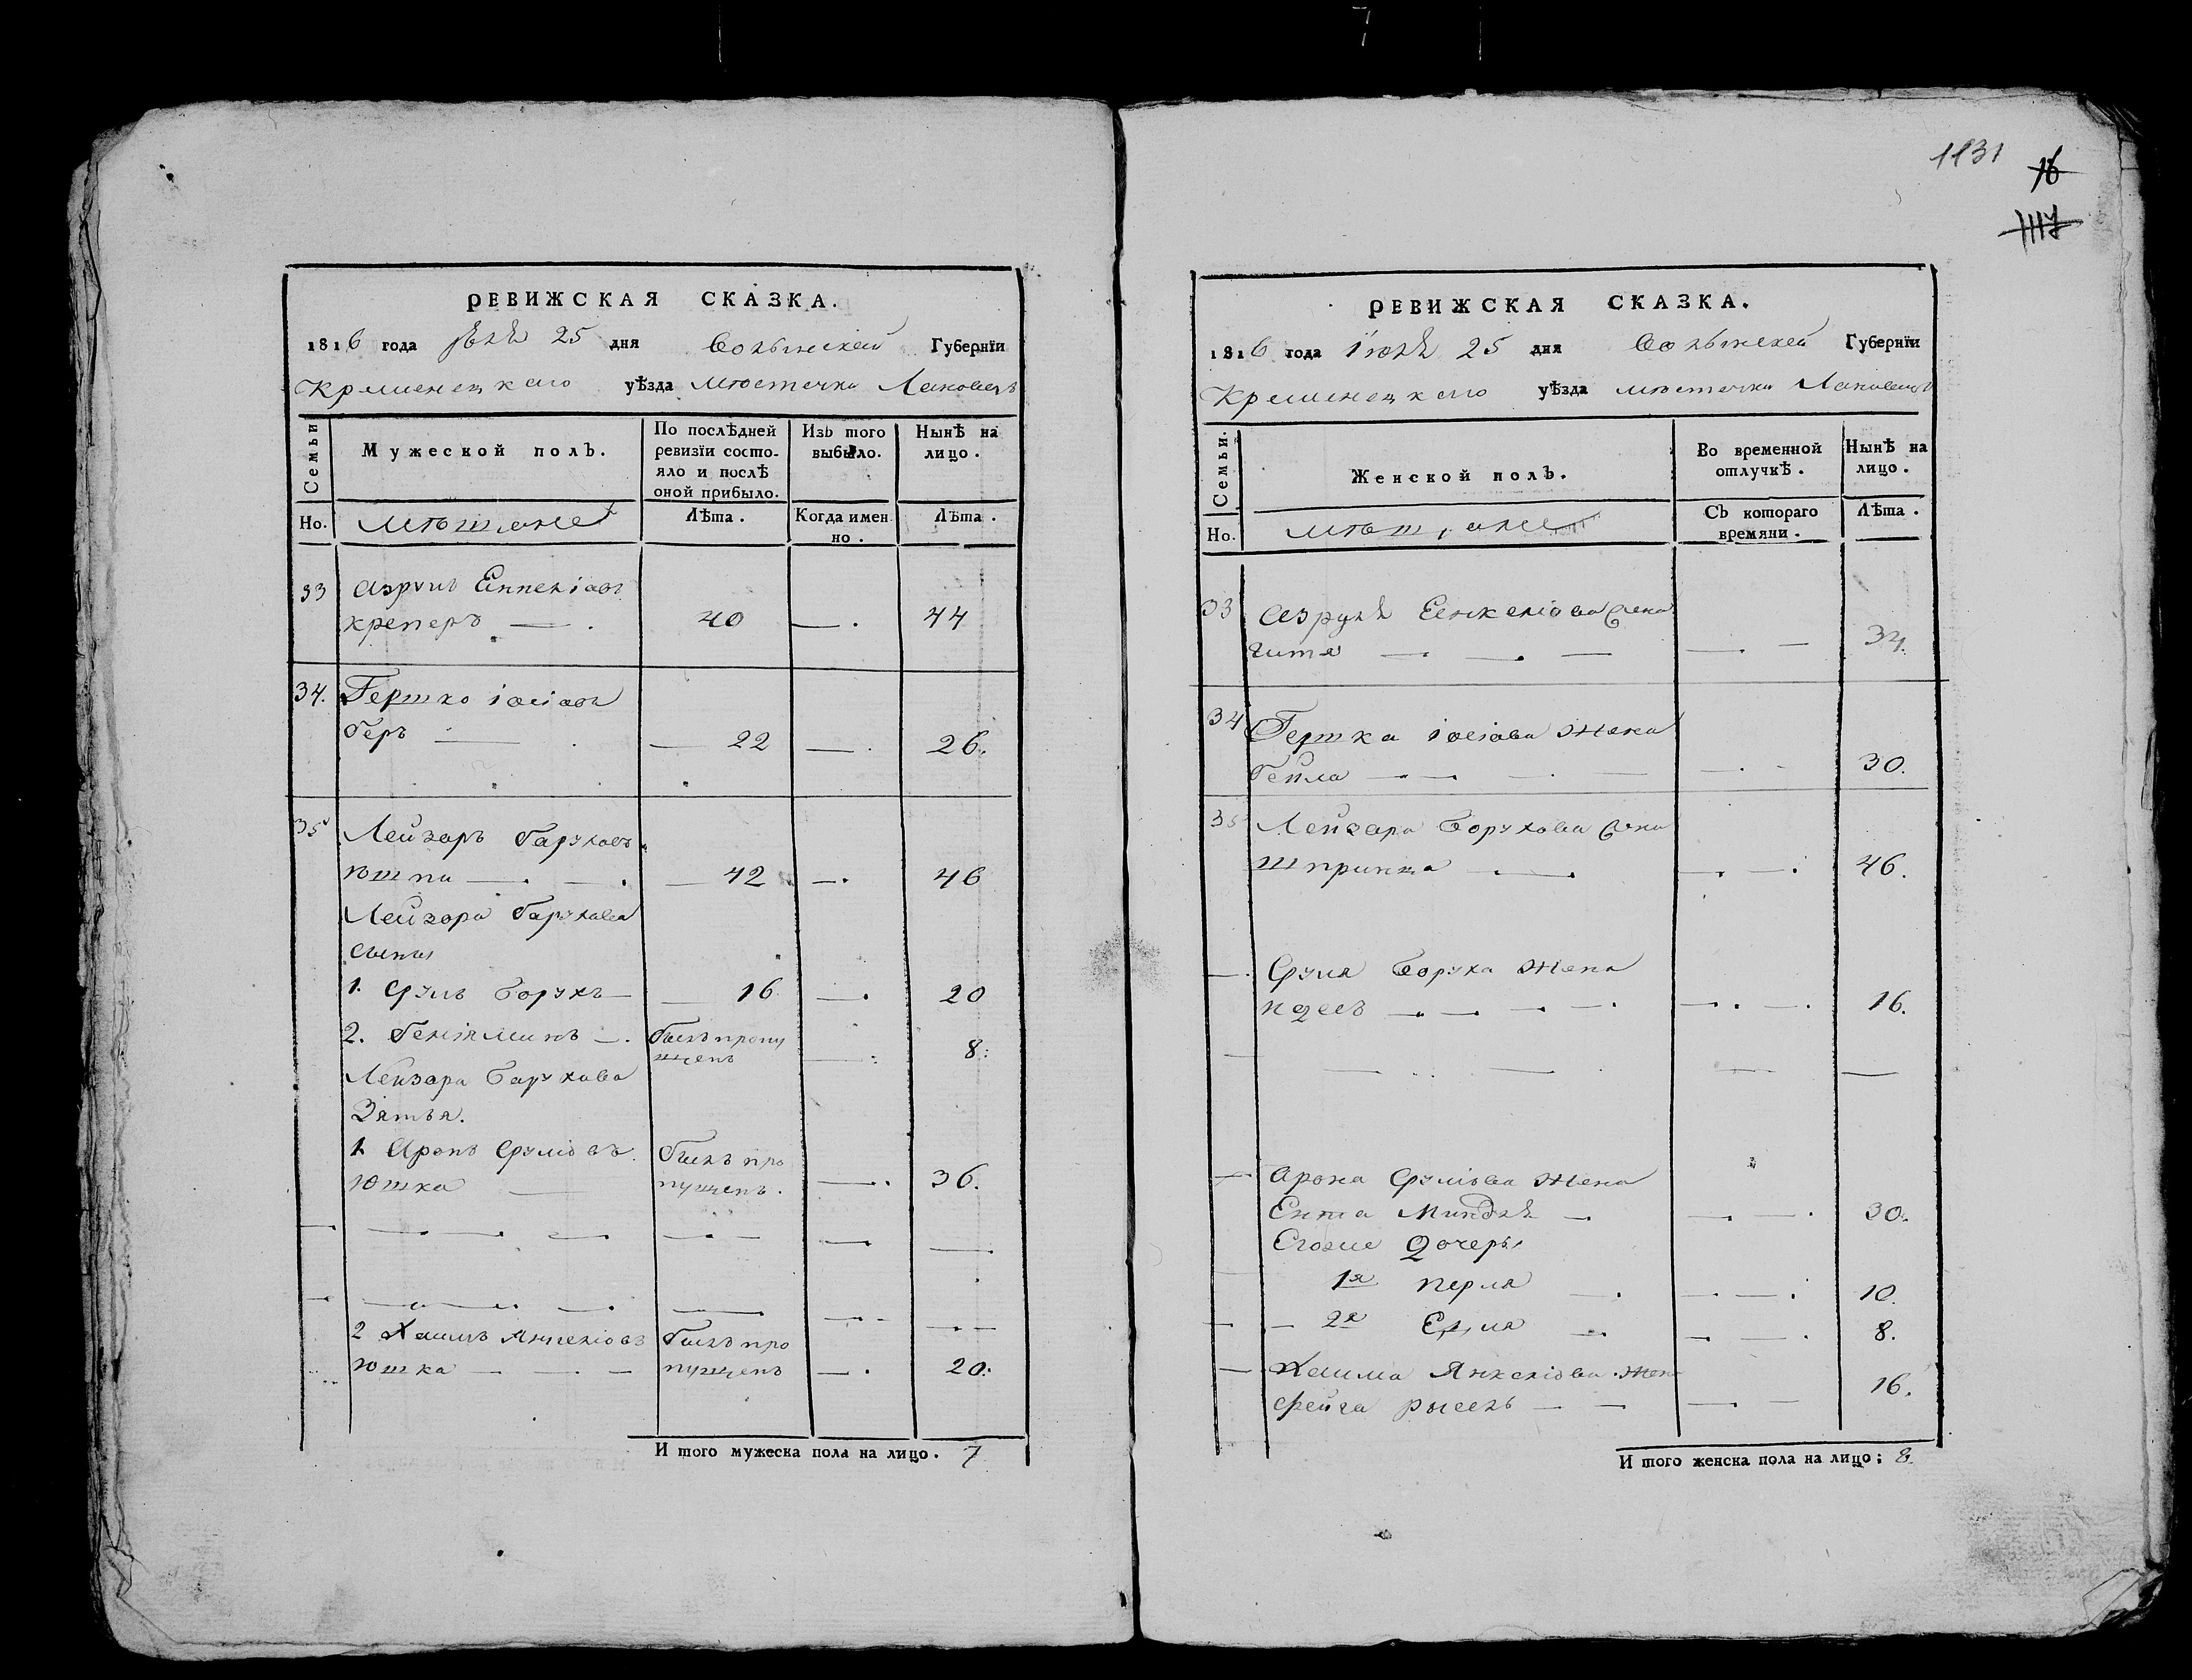 1131
16
1117
РЕВИЖСКАЯ СКАЗКА.
1816 года Іюля 25 дня Волынской Губернїи
Кременецкаго уѣзда мѣстечка Лановецъ
Семьи
Мужеской полъ.
По послѣдней ревизїи состо-
яло и послѣ
оной прибыло.
Изъ того
выбыло.
Нынѣ на
лицо.
Но. мѣщане Лѣта. Когда имен
но. Лѣта.
33 Азрулъ Еннеліовъ
креперъ — 40 — 44
34. Гершко іосіовъ
беръ — 22 — 26.
35 Лейзаръ Баруховъ
юшпа — 42 — 46
Лейзора Барухова
сыны
1. Сруль Борухъ — 16 — 20
2. Беніяминъ — былъ пропу
щенъ — 8.
Лейзора Барухова
Зятья.
1 Аронъ Сруліовъ былъ про
юшка — пущенъ. — 36.
2 Хаимъ Янкеліовъ былъ про
юшка — пущенъ — 20.
И того мужеска пола на лицо. 7
РЕВИЖСКАЯ СКАЗКА.
1816 года Іюля 25 дня Волынской Губернїи
Кременецкаго уѣзда мѣстечка Лановецъ
Семьи.
Женской полъ.
Во временной
отлучкѣ.
Нынѣ на
лицо.
Но. мѣщане Съ котораго
времяни. Лѣта.
33 Азруля Еенкеліова жена
гитя — 34.
34 Гершка іосіова жена
бейла — 30.
35 Лейзара Борухова жена
шпринца — 46.
Сруля Боруха жена
— 16.
Арона Сруліова жена
Ента Миндля — 30.
Егоже дочеры
1я перля — 10.
2я — 8.
Хаима Янкеліова жен
фейга рысель — 16.
И того женска пола на лицо; 8.